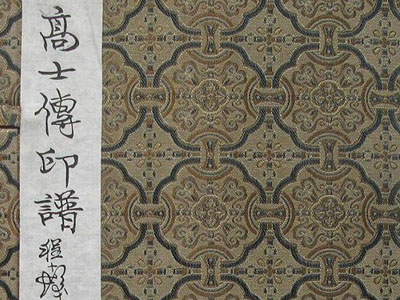 高士傳印譜